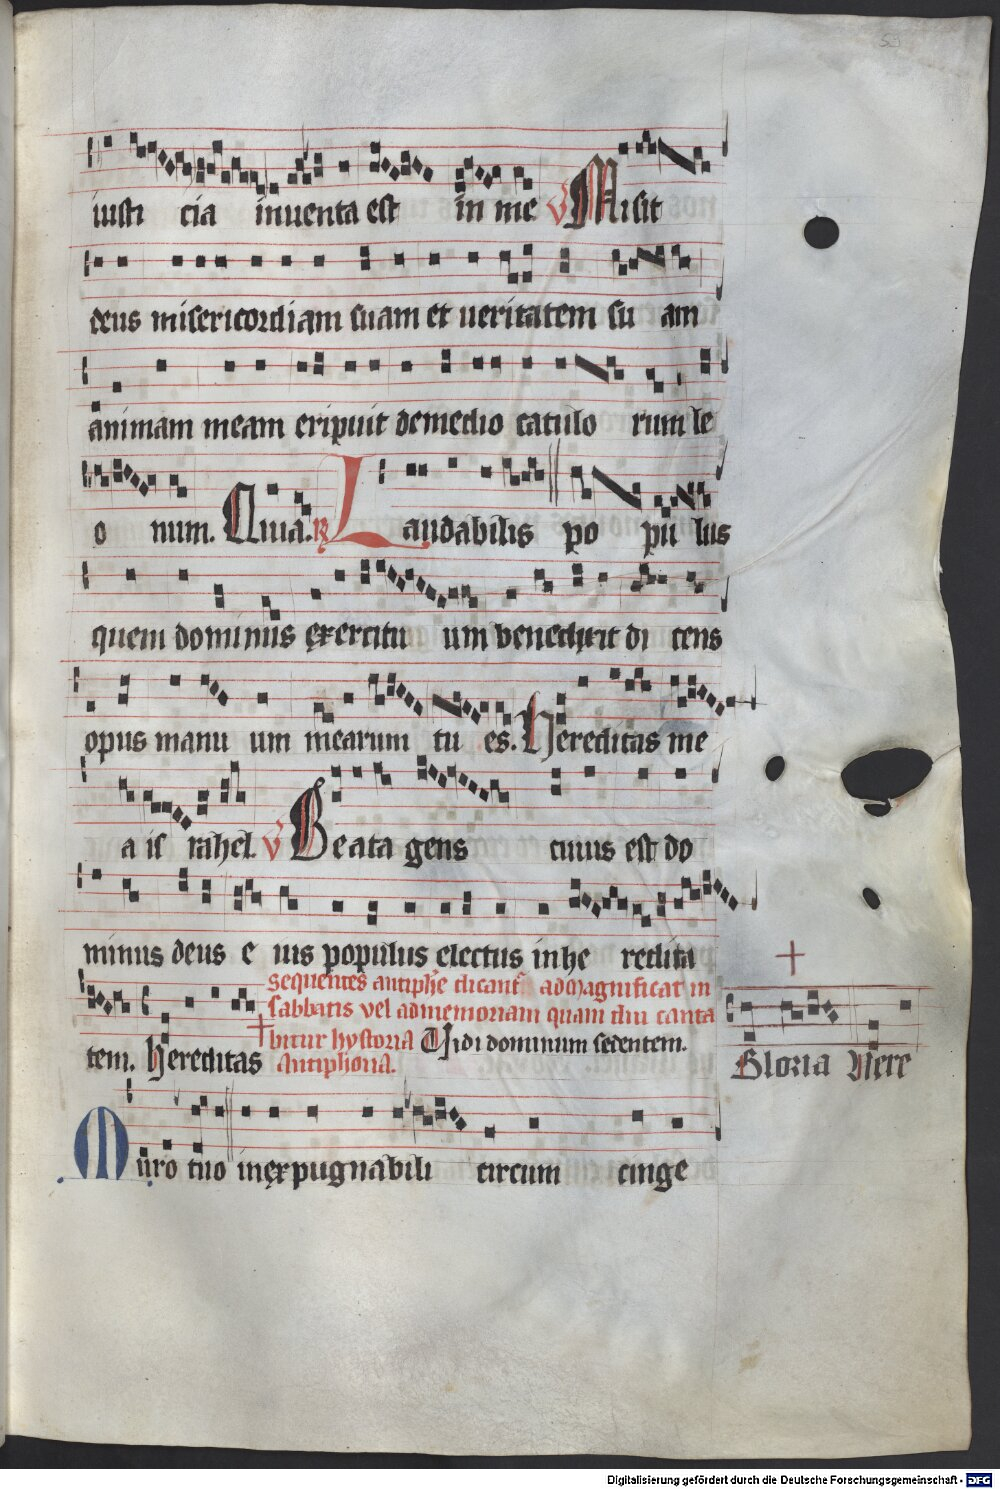 59
iusti cia inuenta est in me v Misit
deus misericordiam suam et ueritatem su am
animam meam eripuit de medio catulo rum le
o num. Quia. R Laudabilis po pu lus
quem dominus exercitu um benedixit di cens
opus manu um mearum tu es. Hereditas me
a is rahel. v Beata gens cuius est do
minus deus e ius populus electus in he redita
sequentes antiphe dicant ad magnificat in
sabbatis vel ad memoriam quam diu canta
bitur hystoria Vidi dominum sedentem.
tem. Hereditas Antiphona.
Gloria Here
Muro tuo inexpugnabili circum cinge
Digitalisierung gefördert durch die Deutsche Forschungsgemeinschaft - DFG